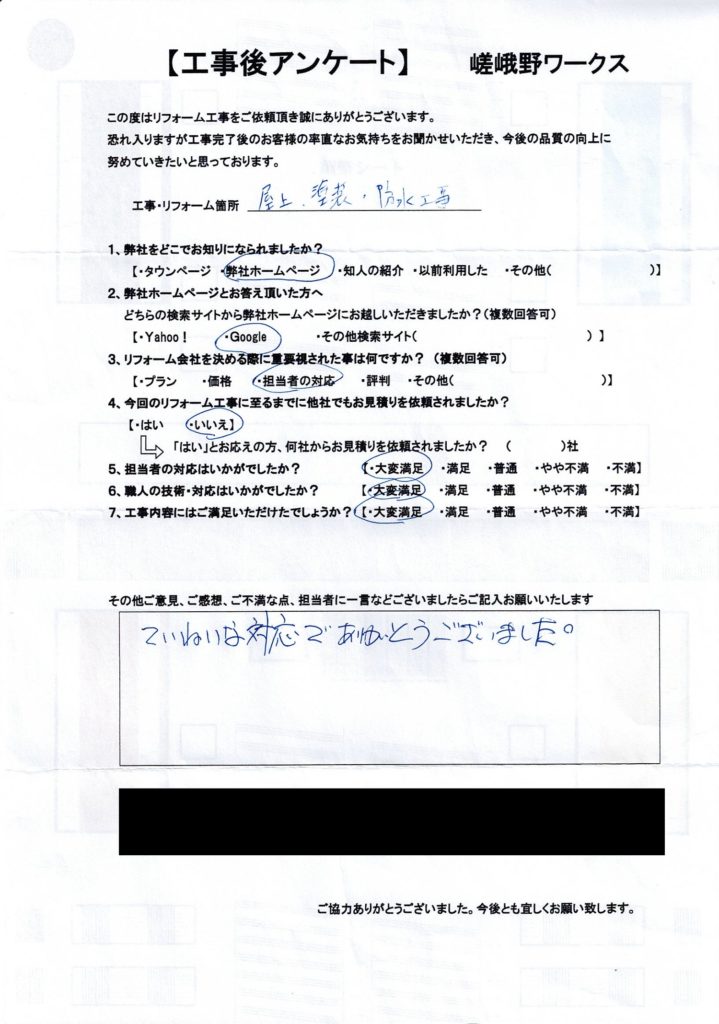 【工事後アンケート】 嵯峨野ワークス
この度はリフォーム工事をご依頼頂き誠にありがとうございます。
恐れ入りますが工事完了後のお客様の率直なお気持ちをお聞かせいただき、今後の品質の向上に
努めていきたいと思っております。
工事・リフォーム箇所 屋上、塗装・防水工事
1、弊社をどこでお知りになられましたか？
【・タウンページ ・弊社ホームページ ・知人の紹介 ・以前利用した ・その他( )】
2、弊社ホームページとお答え頂いた方へ
どちらの検索サイトから弊社ホームページにお越しいただきましたか？(複数回答可)
【・Yahoo！ ・Google ・その他検索サイト( ) 】
3、リフォーム会社を決める際に重要視された事は何ですか？ (複数回答可)
【・プラン ・価格 ・担当者の対応 ・評判 ・その他( )】
4、今回のリフォーム工事に至るまでに他社でもお見積りを依頼されましたか？
【・はい ・いいえ】
「はい」とお応えの方、何社からお見積りを依頼されましたか？ ( )社
5、担当者の対応はいかがでしたか？ 【・大変満足 ・満足 ・普通 ・やや不満 ・不満】
6、職人の技術・対応はいかがでしたか？ 【・大変満足 ・満足 ・普通 ・やや不満 ・不満】
7、工事内容にはご満足いただけたでしょうか？ 【・大変満足 ・満足 ・普通 ・やや不満 ・不満】
その他ご意見、ご感想、ご不満な点、担当者に一言などございましたらご記入お願いいたします
ていねいな対応でありがとうございました。
ご協力ありがとうございました。今後とも宜しくお願い致します。